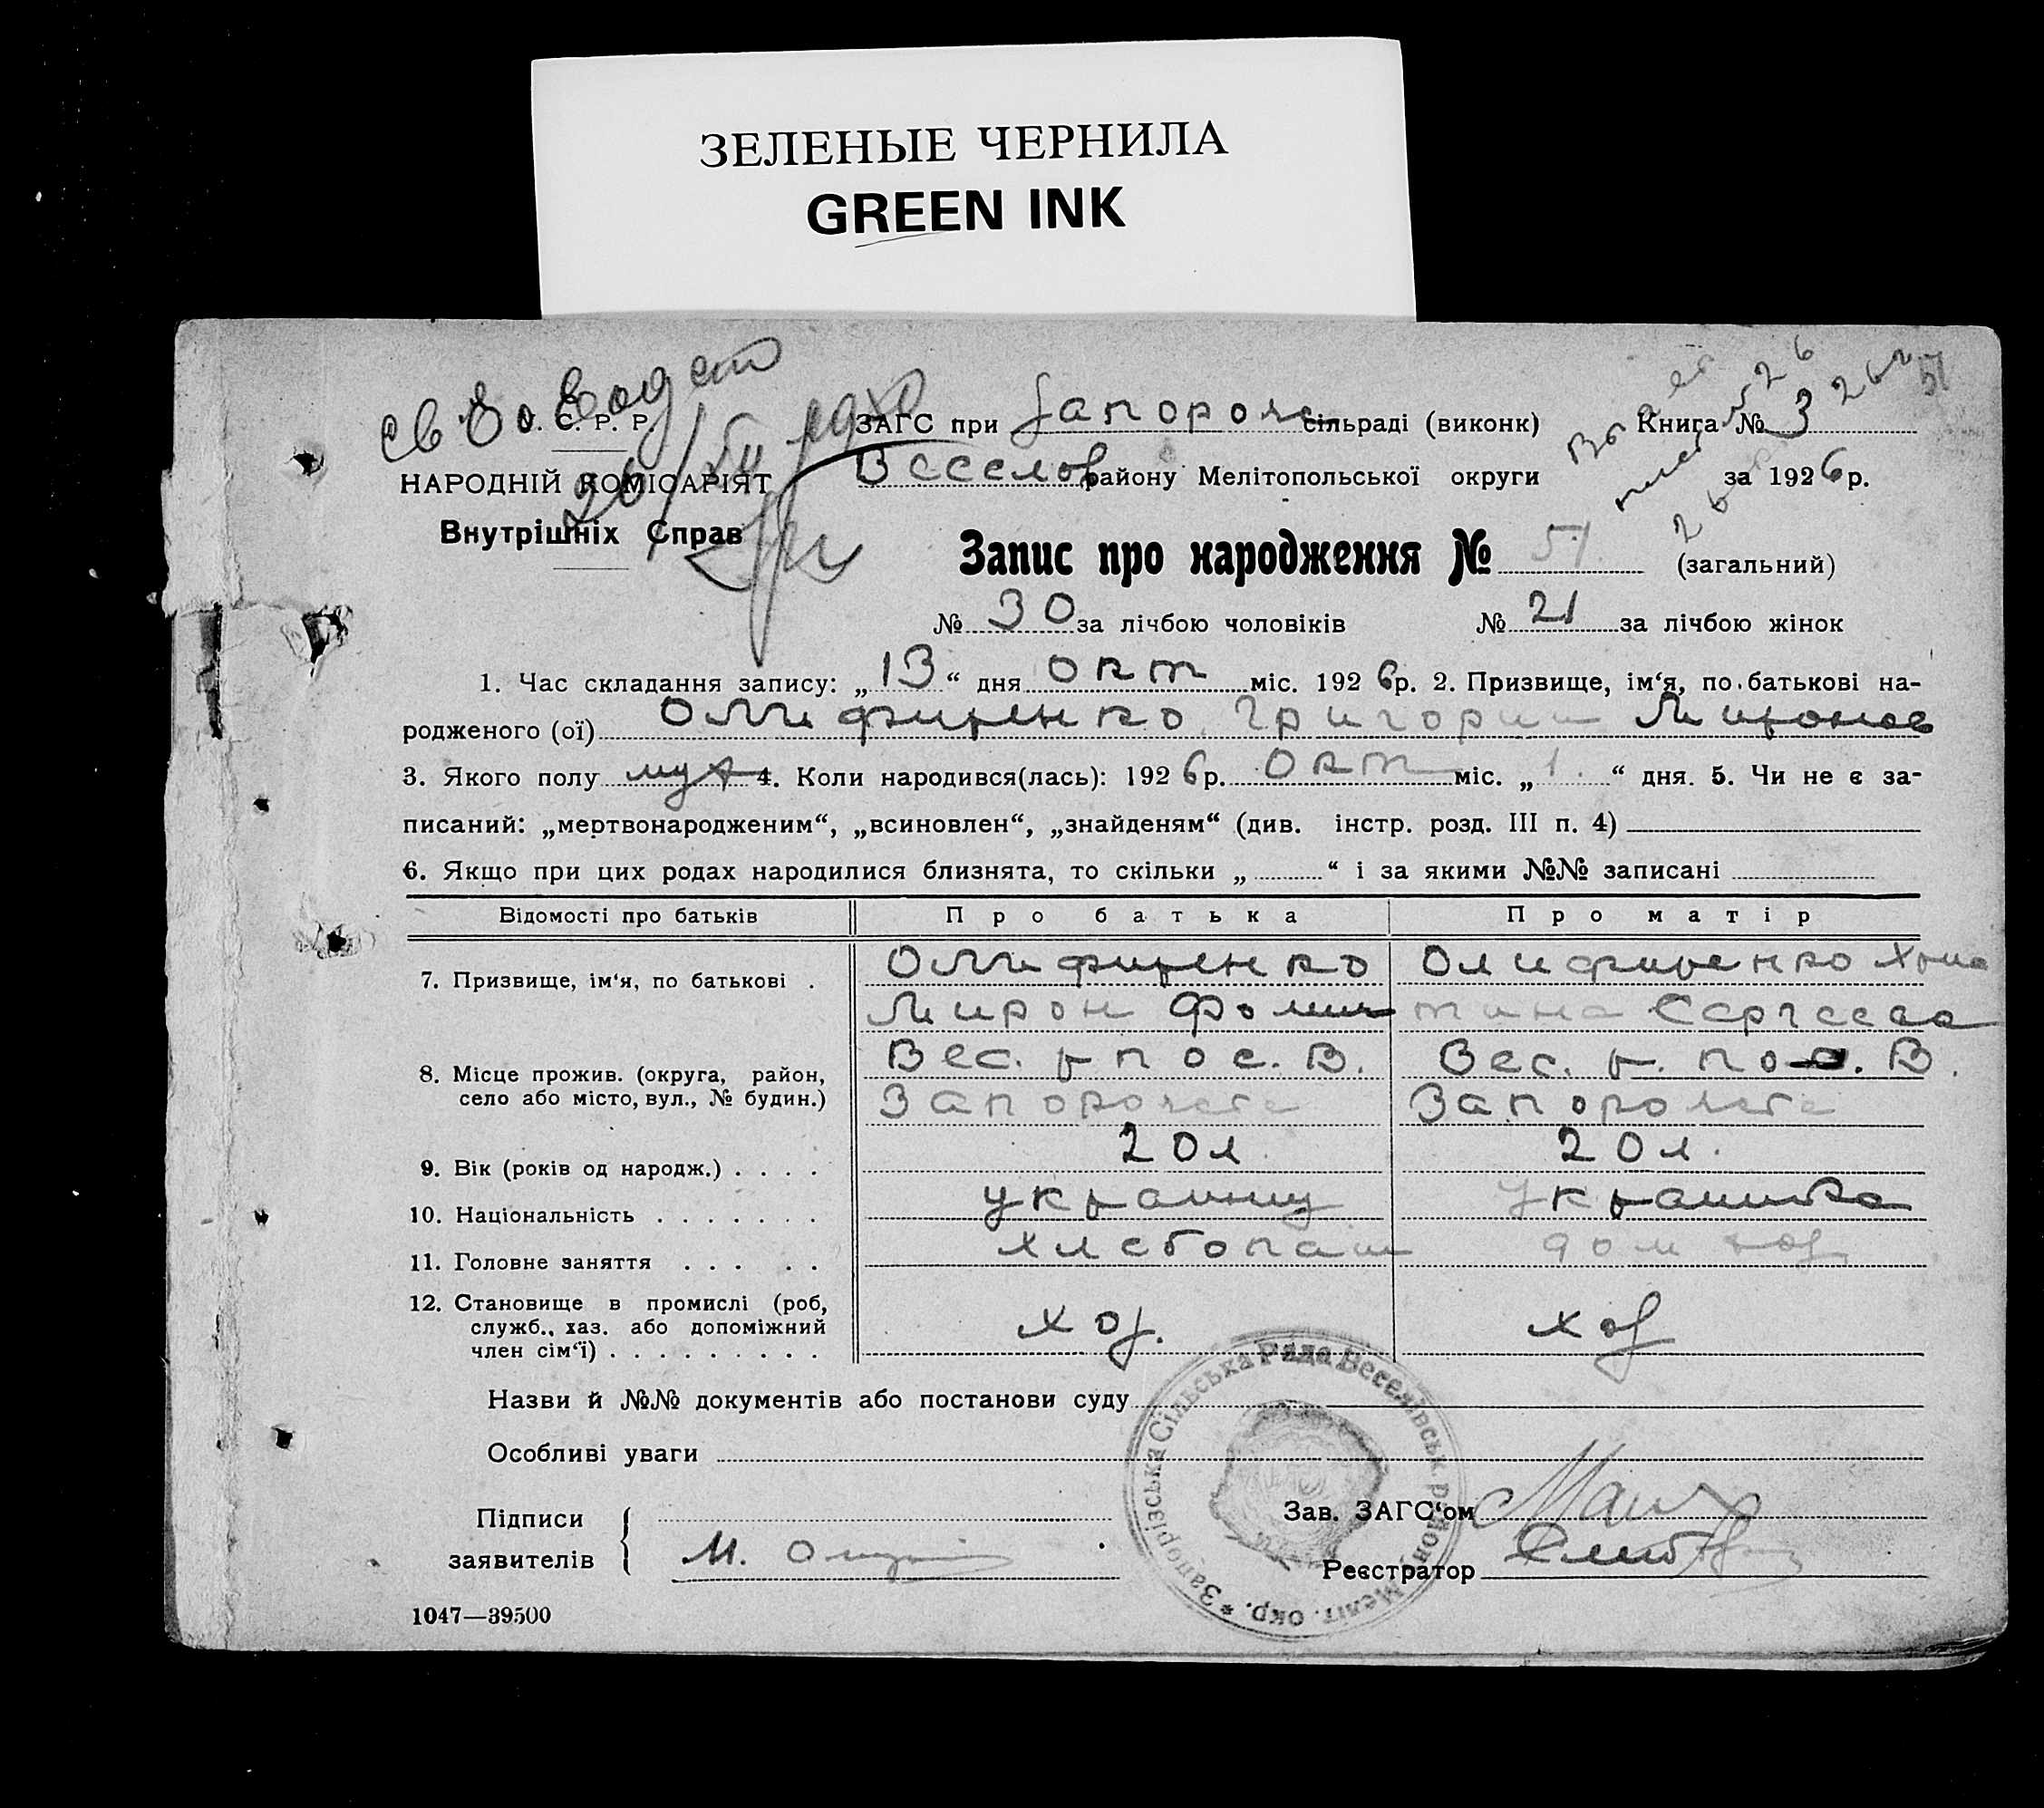 ЗЕЛЕНЫЕ ЧЕРНИЛА
GREEN INK
У. С. Р. Р.
ЗАГС при Запорож сільраді (виконк) Книга № 3
НАРОДНІЙ КОМІСАРІЯТ
Веселов району Мелітопольської округи за 1926 р.
Внутрішніх Справ
Запис про народження № 51 (загальний)
№ 30 за лічбою чоловіків № 21 за лічбою жінок
1. Час складання запису: „13“ дня окт міс. 1926 р. 2. Призвище, ім‘я, по батькові на-
родженого (ої) Олифиренко Григорий Миронов
3. Якого полу муж 4. Коли народився(лась): 1926 р. Окт міс. „1.“ дня. 5. Чи не є за-
писаний: „мертвонародженим“, „всиновлен“, „знайденям“ (див. інстр. розд. III п. 4)
6. Якщо при цих родах народилися близнята, то скільки „ “ і за якими №№ записані
Відомості про батьків Про батька Про матір
7. Призвище, ім‘я, по батькові . Олифиренко Олифиренко Хрис
Мирон Фомич тина Сергеева
8. Місце прожив. (округа, район, село або місто, вул., № будин.) Вес. р пос. В. Вес. р. пос. В.
Запорожье Запорожье
9. Вік (років од народж.) . . . . 20 л. 20 л.
10. Національність . . . . . . . украинц украинка
11. Головне заняття . . . . . хлебопаш дом хоз
12. Становище в промислі (роб, служб., хаз. або допоміжний член сім‘ї) . . . . . . . . . хоз. хоз
Назви й №№ документів або постанови суду
Особливі уваги
Підписи
заявителів М.
Зав. ЗАГС‘ом
Реєстратор
* Запорізська Сільська Рада Веселівськ. район. Меліт. окр.
1047—39500